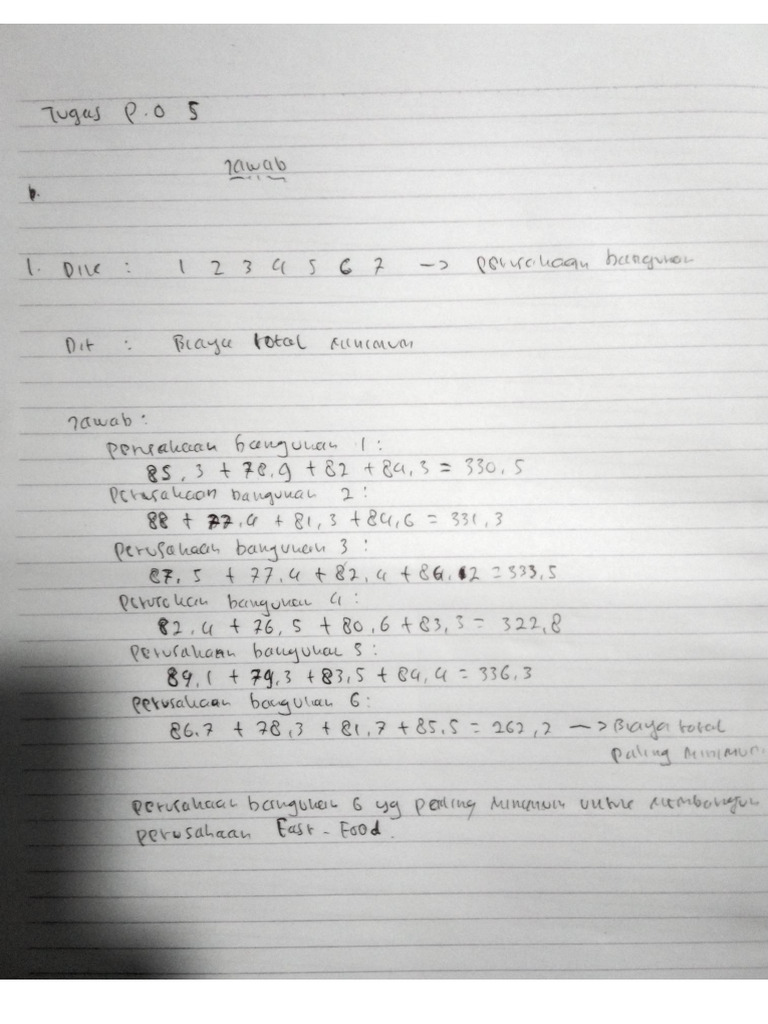 Tugas P.O 5
Jawab
b.
1. Dik : 1 2 3 4 5 6 7 -> perusahaan bangunan
Dit : Biaya total minimum
Jawab :
perusahaan bangunan 1 :
85,3 + 78,9 + 82 + 84,3 = 330,5
Perusahaan bangunan 2 :
88 + 77,4 + 81,3 + 84,6 = 331,3
perusahaan bangunan 3 :
87,5 + 77,4 + 82,4 + 86,2 = 333,5
Perusahan bangunan 4 :
82,4 + 76,5 + 80,6 + 83,3 = 322,8
perusahaan bangunan 5 :
89,1 + 79,3 + 83,5 + 84,4 = 336,3
perusahaan bangunan 6 :
86.7 + 78,3 + 81,7 + 85,5 = 262,2 -> Biaya total
paling minimum.
perusahaan bangunan 6 yg paling minimum untuk membangun
perusahaan East - Food.